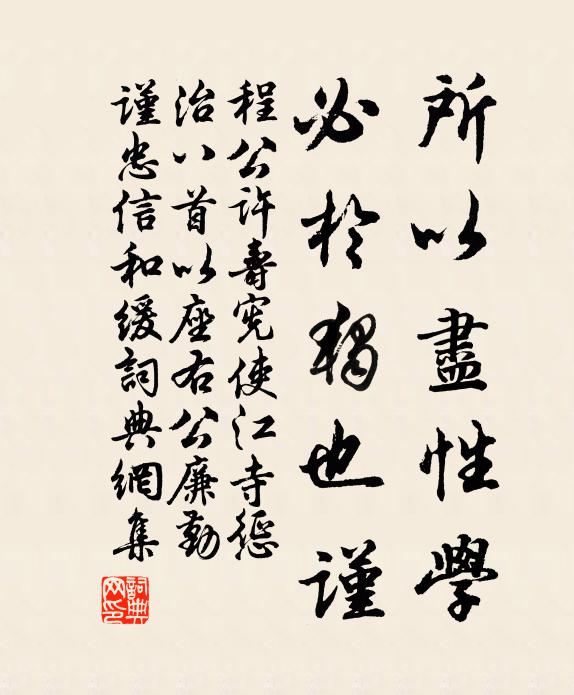 所以盡性學
必於獨也謹
程公許壽宪使江寺簉
治八首以座右公廉勤
謹忠信和缓詞典網集
詞典網印